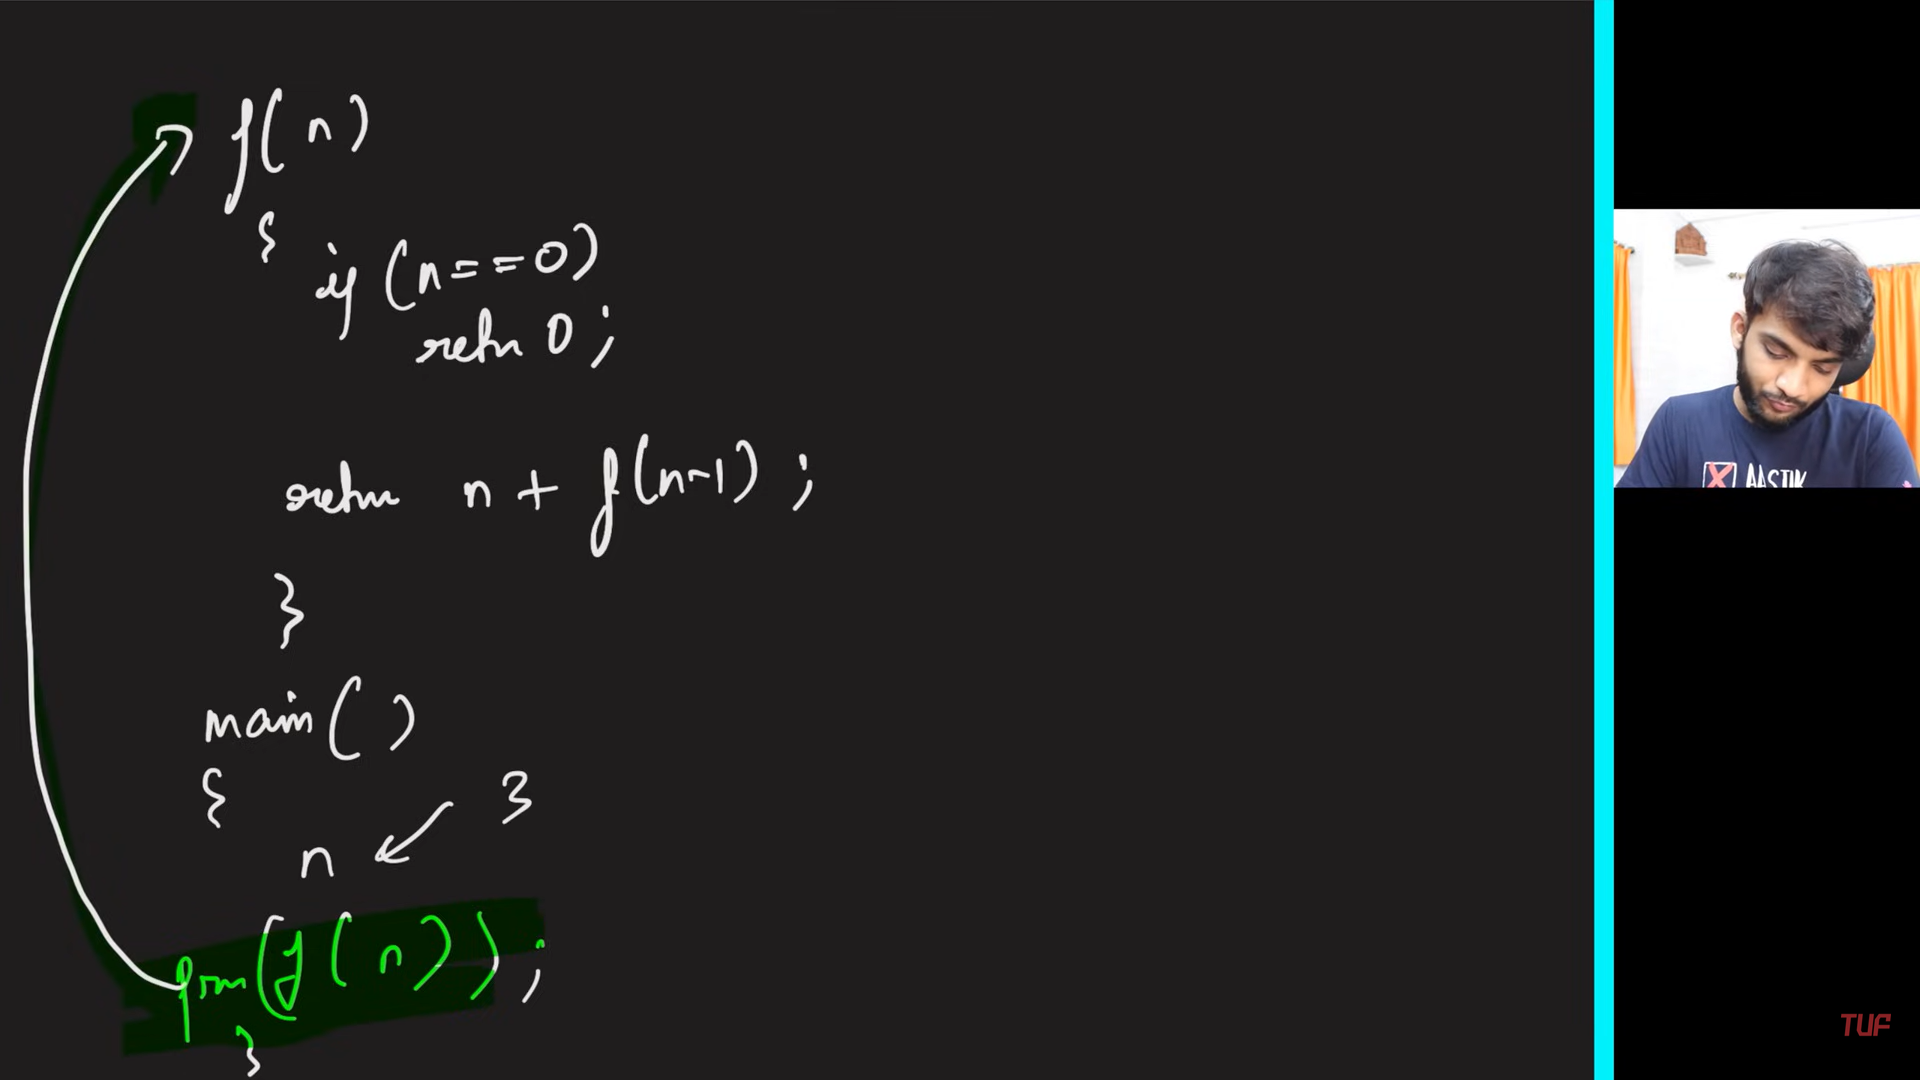 f(n)
{
if (n==0)
retn 0;
return n + f(n-1);
}
main()
{
3
n
prin(f(n));
}
AASTIK
TUF